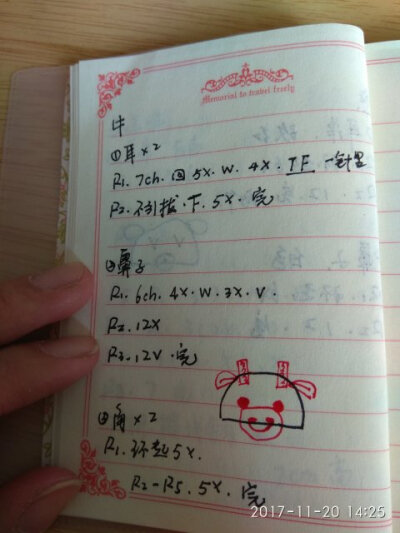 Memorial to travel freely
牛
①耳×2
R1. 7ch. 回 5X. W. 4X. TF 一针里
R2. 不引拔. 下. 5X. 完
②鼻子
R1. 6ch. 4X. W. 3X. V.
R2. 12X
R3. 12V. 完
角×2
R1. 环起5X.
R2-R5. 5X. 完
2017-11-20 14:25